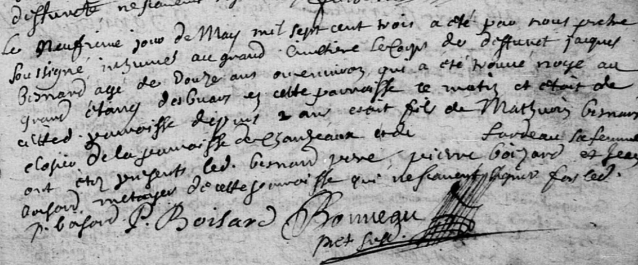 deffunct ne scavent
Le Neufvième jour de May mil sept cent trois a été par nous prêtre
soussigné inhumé au grand cimetière le corps de deffunct jacques
Besnard agé de Douze ans ou environ, qui a été trouvé noyé au
grand étang des en cette parroisse ce matin et étoit de
cetted. parroisse depuis 2 ans étoit fils de Mathurin besnard
closier de la parroisse de Chanzeaux et de sa femme
ont été présents led. besnard père, pierre boisard et Jean
boisard métayer de cette parroisse qui ne scavent signer fors led.
p. boisard P. Boisard Bonneau